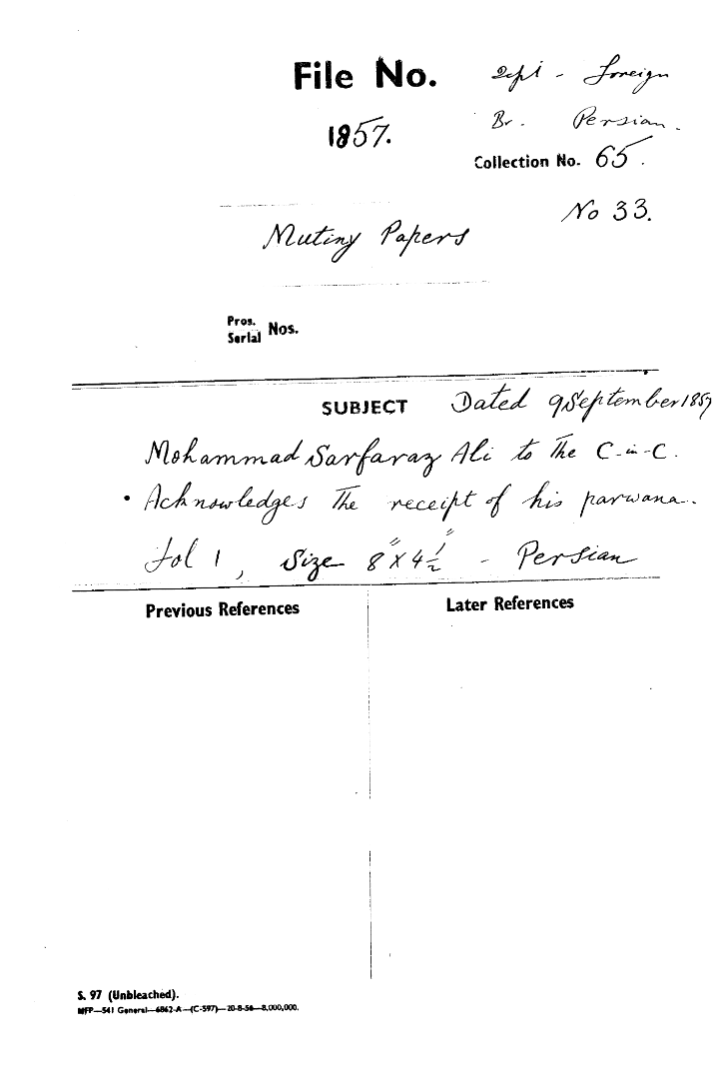 File No.
Dept - Foreign
Br. Persian.
1857.
Collection No. 65.
No 33.
Mutiny Papers
Pros. Serial Nos.
SUBJECT Dated 9 September 1857
Mohammad Sarfaraz Ali to The C-in-C.
• Acknowledges The receipt of his parwana.
Fol 1, Size 8" X 4 1/2" - Persian
Previous References
Later References
S. 97 (Unbleached).
MFP—541 General—6862-A—(C-597)—20-8-56—8,000,000.